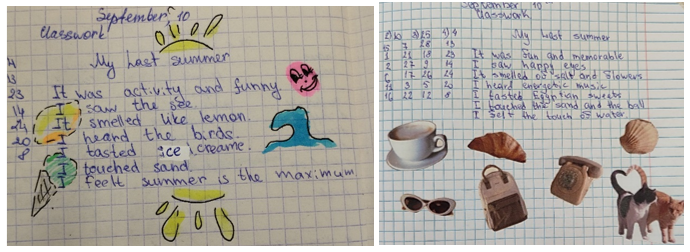 September, 10
Classwork
My last summer
23 It was activity and funny
14 I saw the see
24 It smelled like lemon.
20 I heard the birds.
8 I tasted ice creame.
I touched sand.
I feelt summer is the maximum
September 10
Classwork
My last summer
It was fun and memorable
I saw happy eyes
It smelled of salt and flowers
I heard energetic music
I tasted Egyptian sweets
I touched the sand and the ball
I felt the touch of water.